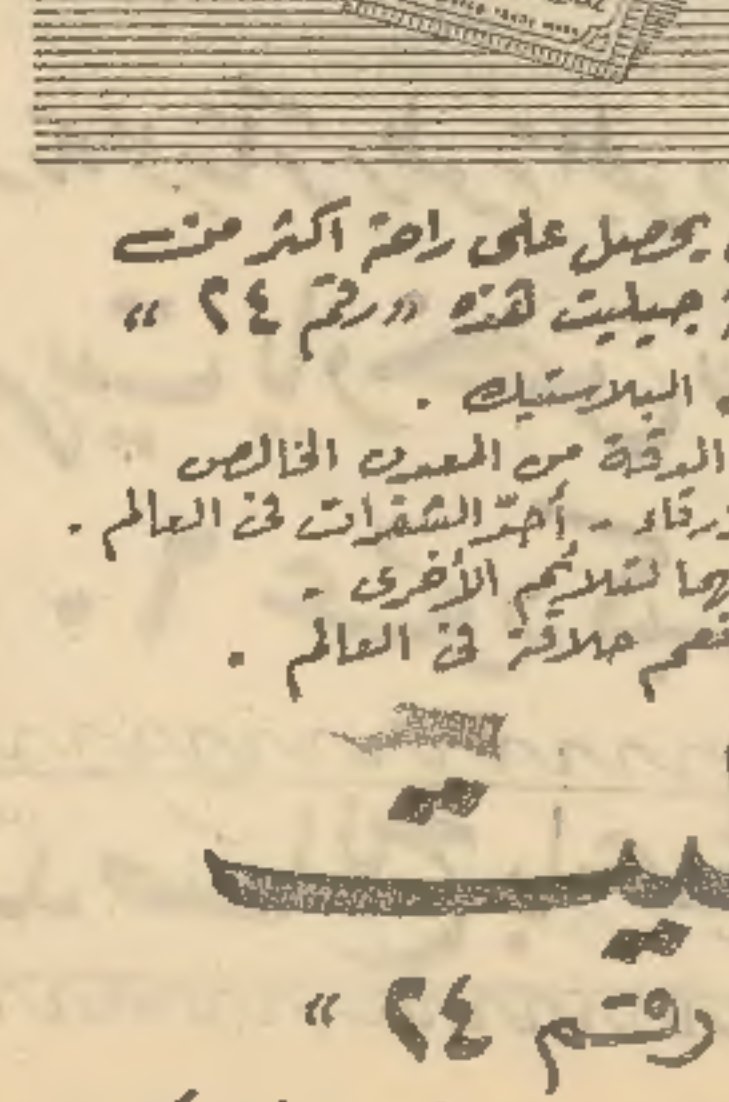 TRADE MARK
يحصل على راحة اكثر من
جيليت هذه «رقم ٢٤»
البلاستيك .
الدقة من المعدن الخالص
أحدّ الشفرات في العالم .
لتلائم الأخرى -
حلاقة في العالم .
رقم ٢٤ »